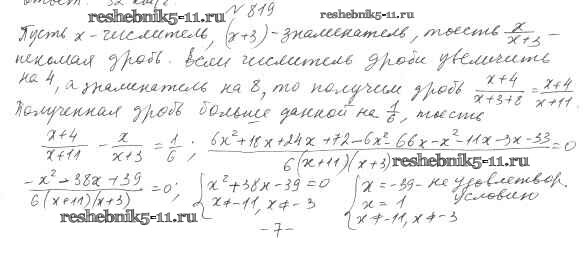 ответ: 32 км/ч.
№ 819
reshebnik5-11.ru reshebnik5-11.ru
Пусть x - числитель, (x+3) - знаменатель, тоесть x/(x+3) -
искомая дробь. Если числитель дроби увеличить
на 4, а знаменатель на 8, то получим дробь (x+4)/(x+3+8) = (x+4)/(x+11).
Полученная дробь больше данной на 1/6, тоесть
(x+4)/(x+11) - x/(x+3) = 1/6; (6x²+18x+24x+72-6x²-66x-x²-11x-3x-33)/(6(x+11)(x+3)) = 0
reshebnik5-11.ru
(-x²-38x+39)/(6(x+11)(x+3)) = 0; { x²+38x-39=0 { x=-39 - не удовлетвор.
x≠-11, x≠-3 x=1 условию
reshebnik5-11.ru x≠-11, x≠-3
-7-